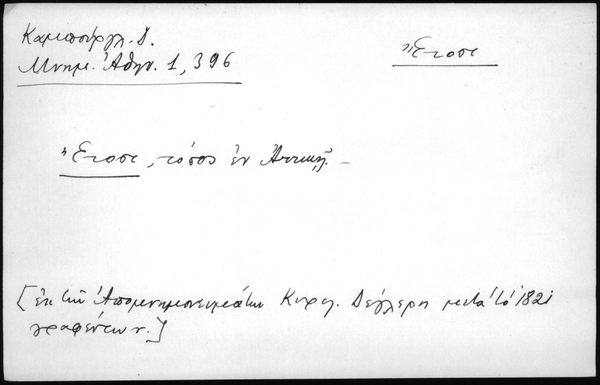 Καμπούργλ. Δ.
Μνημ. Ἀθην. 1, 396
Ἔτοσι
Ἔτοσι, τόπος ἐν Ἀττικῇ. –
[ἐκ τῶν Ἀπομνημονευμάτων Κυρ. Δέγλερη μετὰ τὸ 1821
γραφέντων.]